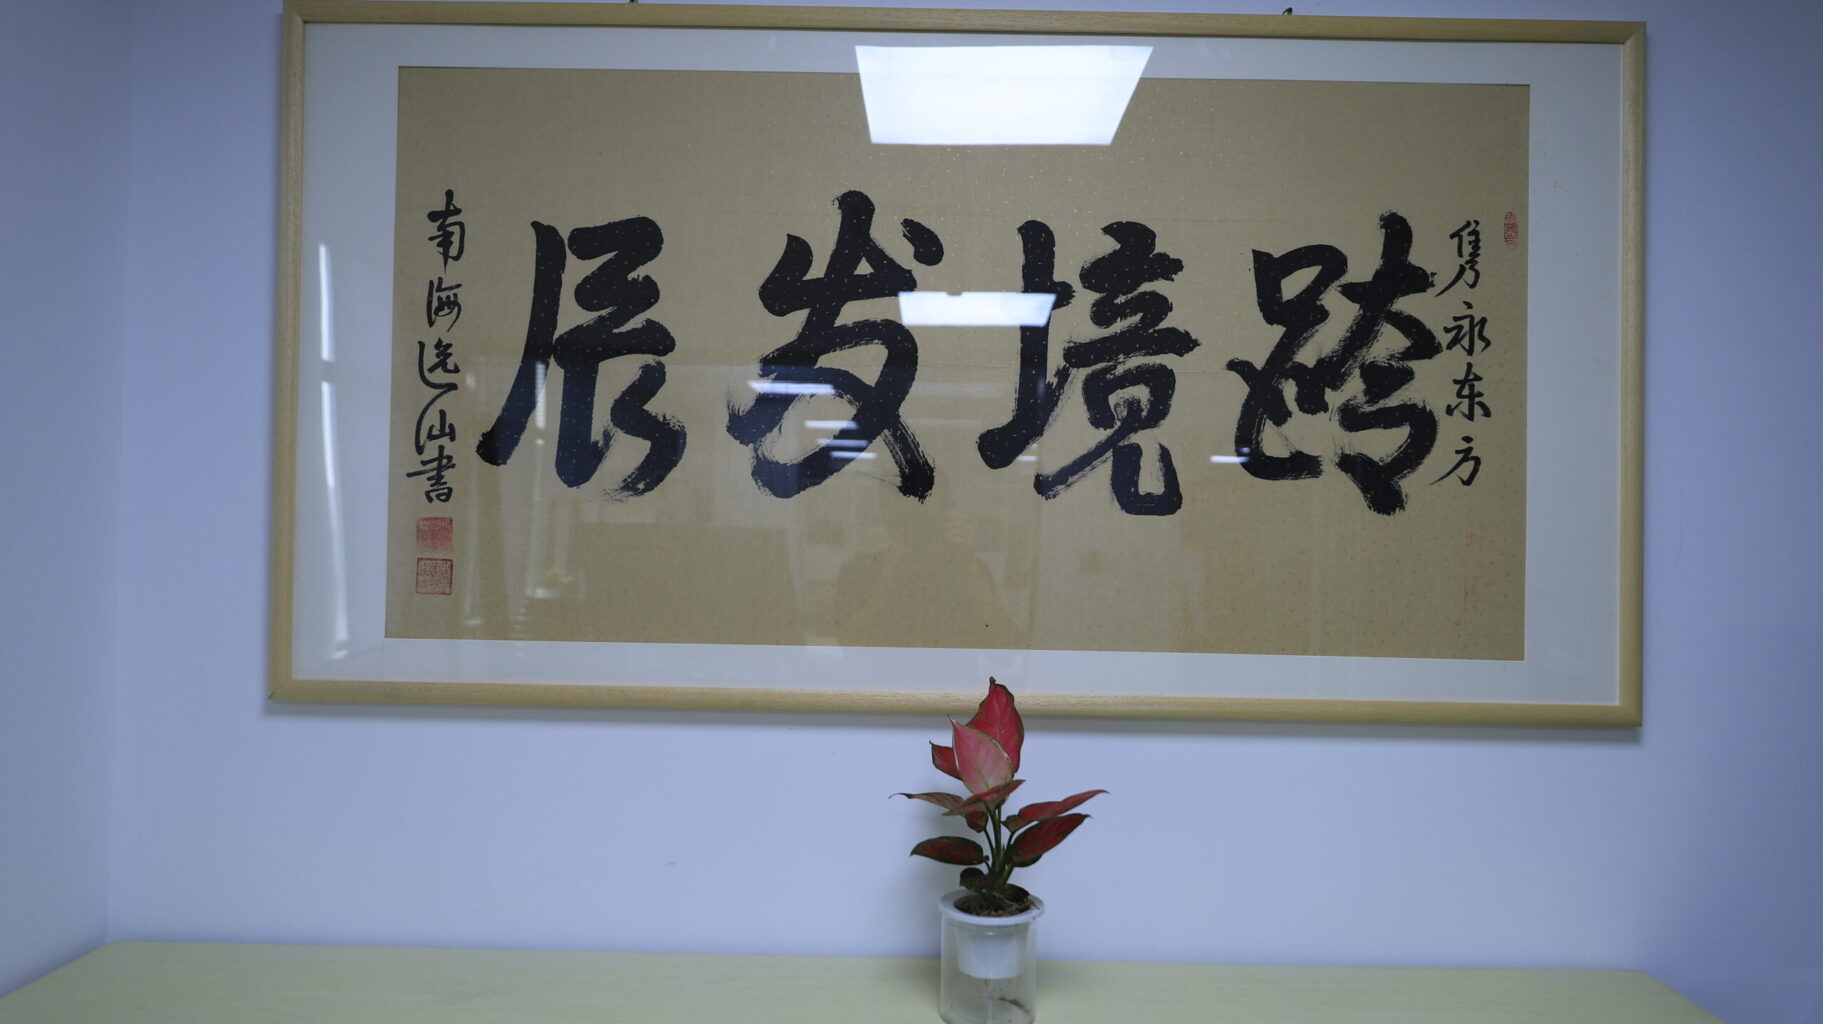 隽永东方
跨境发展
南海逸汕書